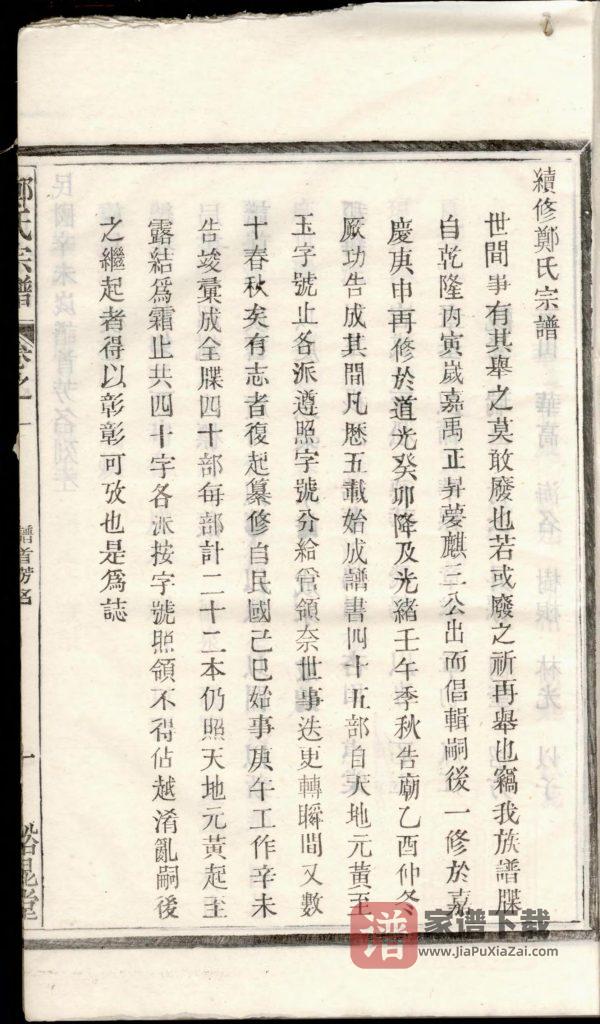 續修鄭氏宗譜
世間事有其舉之莫敢廢也若或廢之祈再舉也竊我族譜牒
自乾隆丙寅嵗嘉禹正昇夢麒三公出而倡輯嗣後一修於嘉
慶庚申再修於道光癸卯降及光緒壬午季秋告廟乙酉仲冬
厥功告成其間凡歷五載始成譜書四十五部自天地元黃至
玉字號止各派遵照字號分給管領奈世事迭更轉瞬間又數
十春秋矣有志者復起纂修自民國己巳始事庚午工作辛未
告竣彙成全牒四十部每部計二十二本仍照天地元黃起至
露結爲霜止共四十字各派按字號照領不得佔越淆亂嗣後
之繼起者得以彰彰可攷也是爲誌
鄭氏宗譜
卷之一
譜首芳名
一
譜
家谱下载
www.JiaPuXiaZai.com